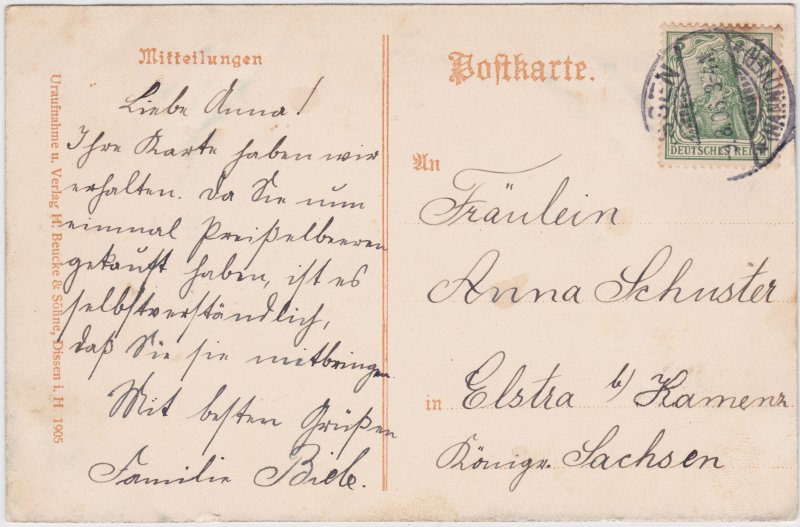 Mitteilungen
Liebe Anna!
Ihre Karte haben wir
erhalten. Da Sie nun
einmal Preißelbeeren
gekauft haben, ist es
selbstverständlich,
daß Sie sie mitbringen.
Mit besten Grüßen
Familie Biele.
Uraufnahme u. Verlag H. Beucke & Söhne, Dissen i. H 1905
Postkarte.
DEUTSCHES REICH
5
An
Fräulein
Anna Schuster
in Elstra b/ Kamenz
Königr. Sachsen